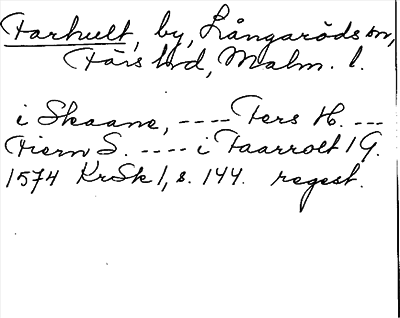 Farhult, by, Långaröds sn,
Färs hd, Malm. l.
i Skaane, ---- Fers H. ---
Fiern S. ---- i Faarrolt 1 G.
1574 KrSk 1, s. 144. regest.